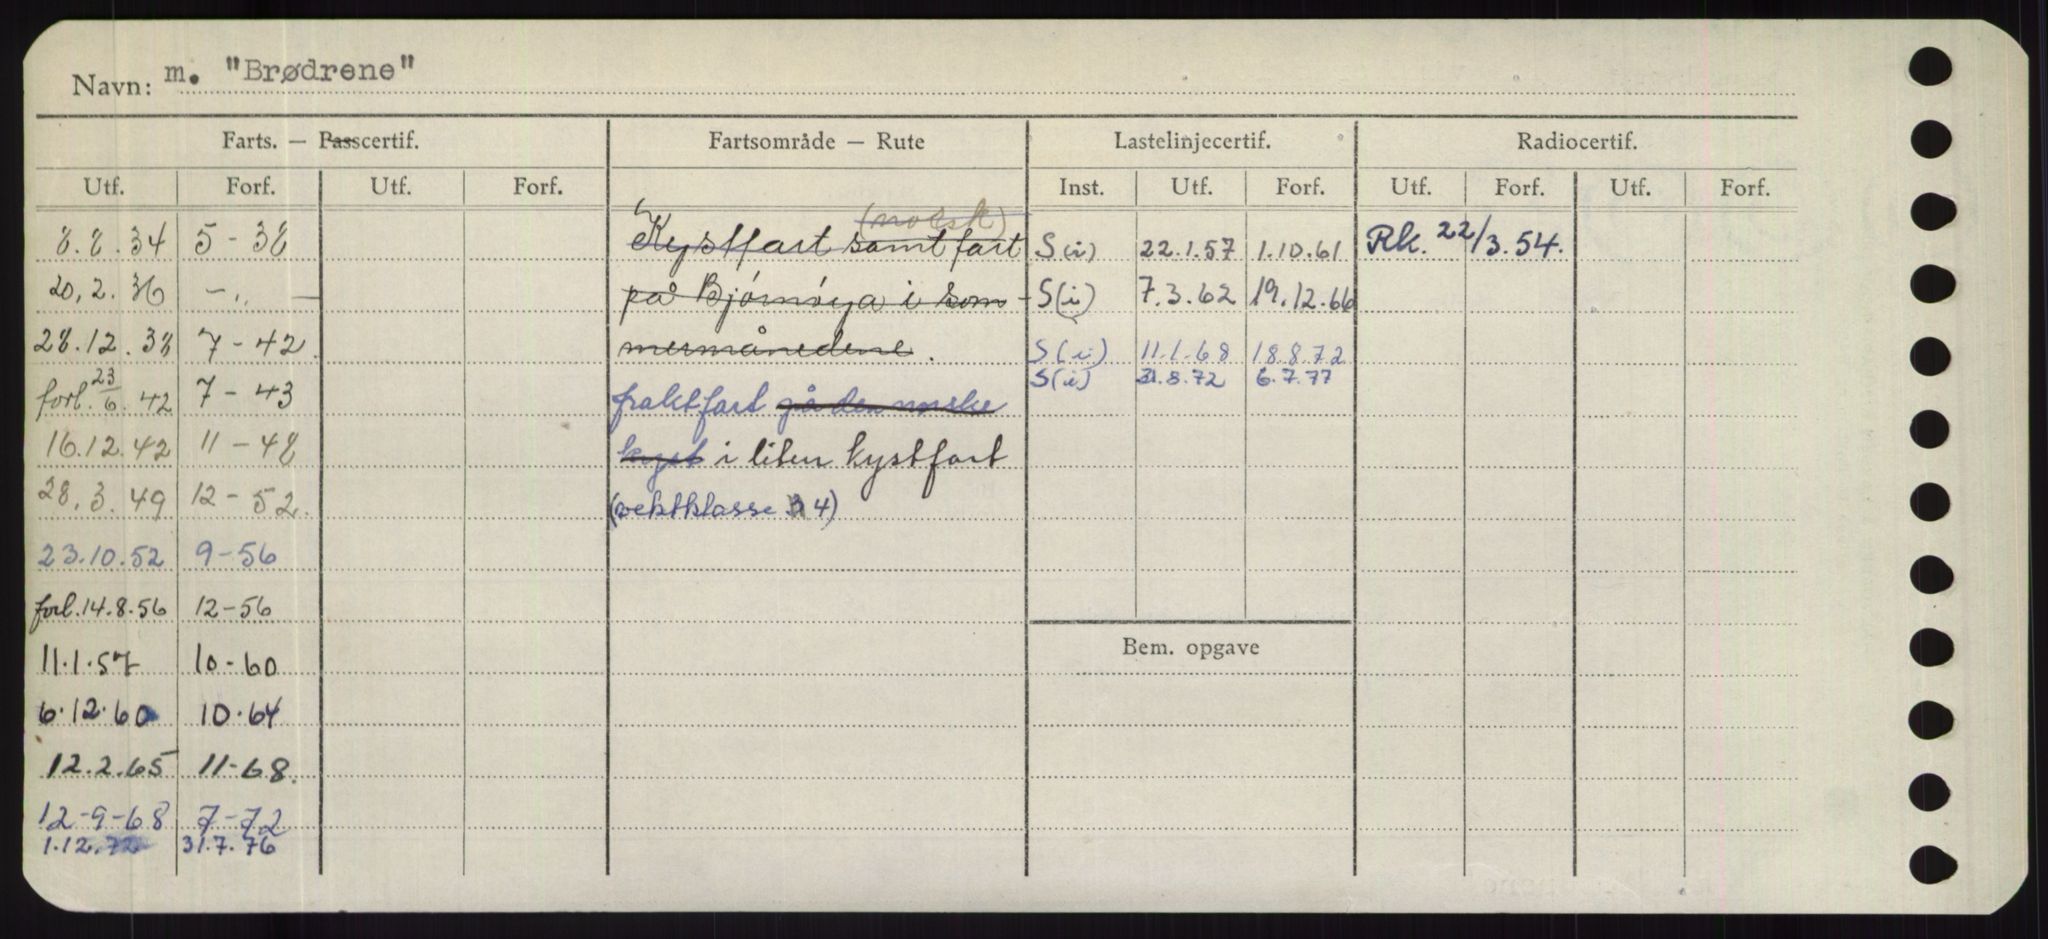 Navn: m. "Brødrene"
Farts. — Passcertif. Fartsområde — Rute Lastelinjecertif. Radiocertif.
Utf. Forf. Utf. Forf. Inst. Utf. Forf. Utf. Forf. Utf. Forf.
(norsk)
8.8.34 5-38 Kystfart samt fart S(i) 22.1.57 1.10.61 Rk. 22/3.54.
20.2.36 -,,- på Bjørnøya i som- S(i) 7.3.62 19.12.66
28.12.38 7-42. mermånedene. S(i) 11.1.68 18.8.72
S(i) 31.8.72 6.7.77
forl. 23/6.42 7-43 fraktfart på den norske
16.12.42 11-48 kyst i liten kystfart
28.3.49 12-52. (vektklasse 4)
23.10.52 9-56
forl.14.8.56 12-56
11.1.57 10-60 Bem. opgave
6.12.60 10.64
12.2.65 11-68.
12-9-68 7-72
1.12.72 31.7.76